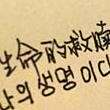 生命的救贖
나의 생명 이다